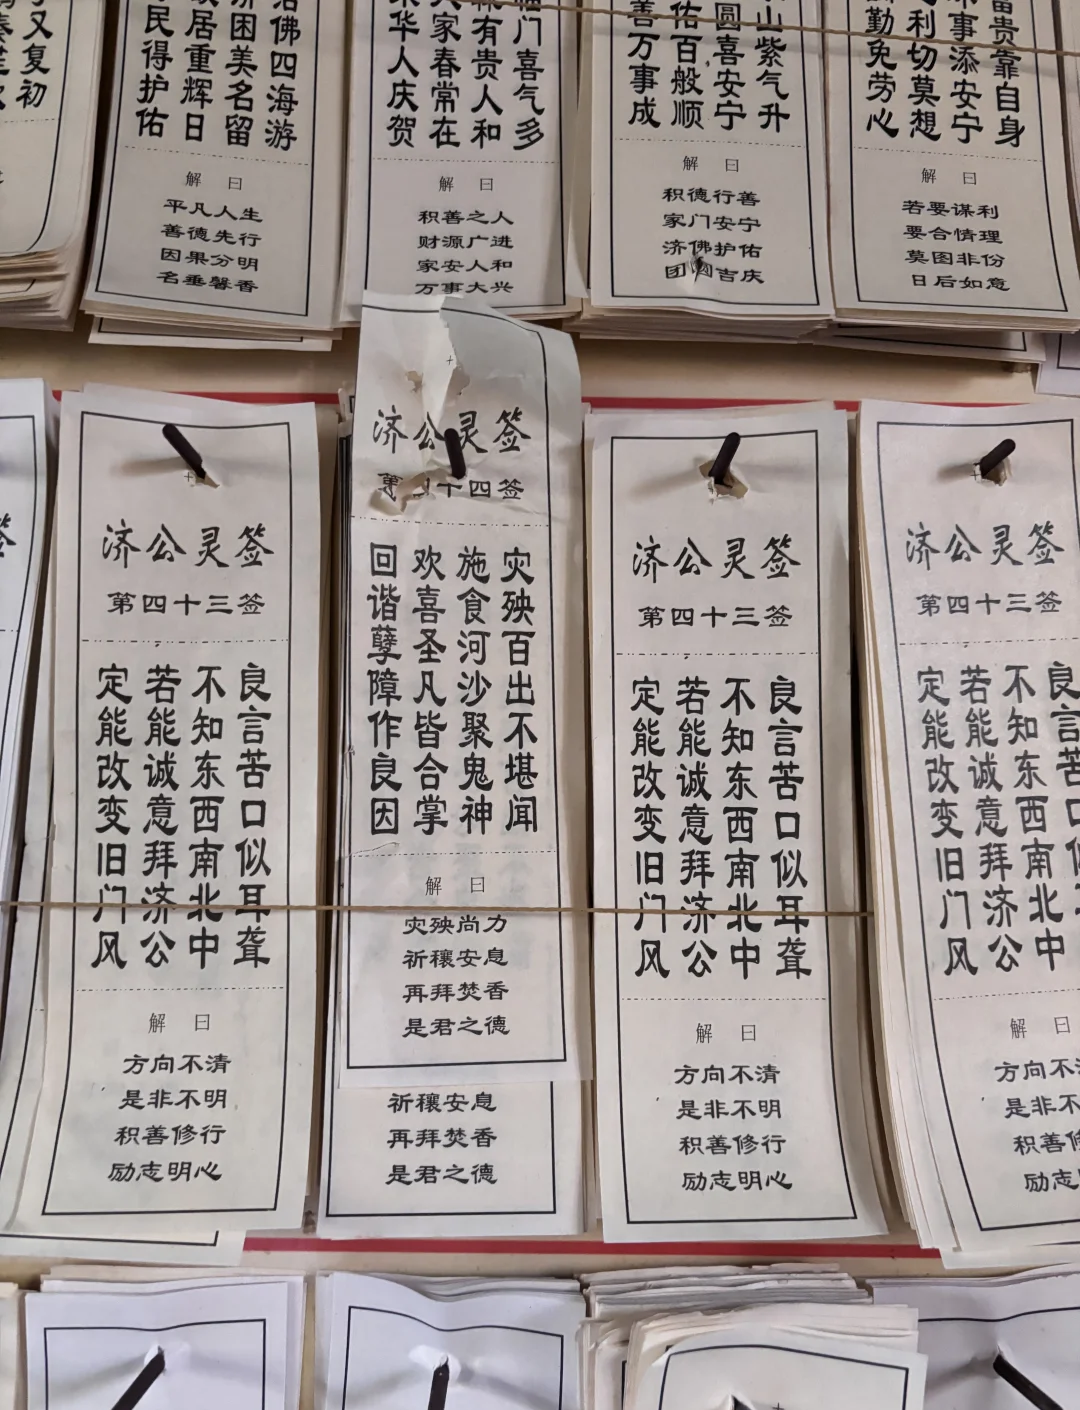 又复初
佛四海游
困美名留
居重辉日
民得护佑
解曰
平凡人生
善德先行
因果分明
名垂馨香
门喜气多
有贵人和
家春常在
华人庆贺
解曰
积善之人
财源广进
家安人和
万事大兴
山紫气升
圆喜安宁
佑百般顺
善万事成
解曰
积德行善
家门安宁
济佛护佑
团圆吉庆
贵靠自身
事添安宁
利切莫想
勤免劳心
解曰
若要谋利
要合情理
莫图非份
日后如意
签
济公灵签
第四十三签
良言苦口似耳聋
不知东西南北中
若能诚意拜济公
定能改变旧门风
解曰
方向不清
是非不明
积善修行
励志明心
济公灵签
第四十四签
灾殃百出不堪闻
施食河沙聚鬼神
欢喜圣凡皆合掌
回谐孽障作良因
解曰
灾殃尚力
祈穰安息
再拜焚香
是君之德
祈穰安息
再拜焚香
是君之德
济公灵签
第四十三签
良言苦口似耳聋
不知东西南北中
若能诚意拜济公
定能改变旧门风
解曰
方向不清
是非不明
积善修行
励志明心
济公灵签
第四十三签
良言苦口似
不知东西南北中
若能诚意拜济公
定能改变旧门风
解曰
方向不清
是非不
积善修
励志明